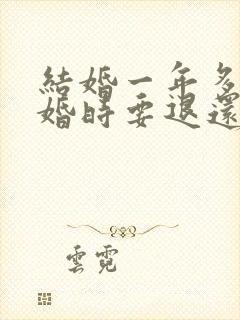 結婚一年多
婚時要退還
雲霓